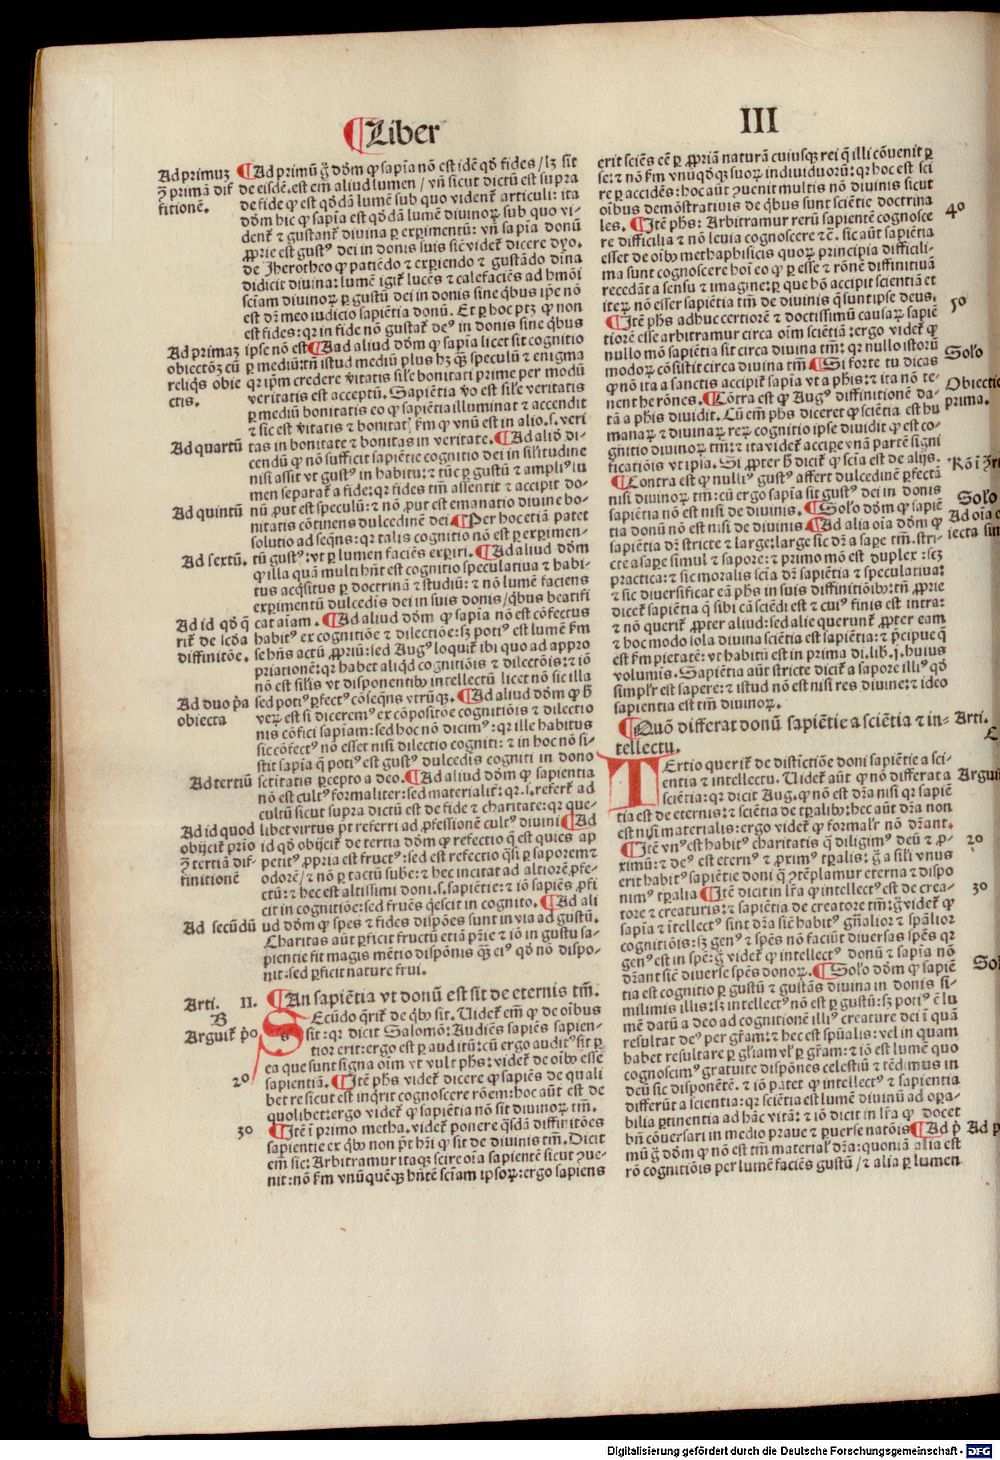 ¶Liber
III
Ad primuz
ꝯ̃ primā dif
finitionē.
¶Ad primū g̃ dōm ꝙ sapīa nō est idē qd̄ fides / lꝫ sit
de eisdē. est em̄ aliud lumen / vn̄ sicut dictū est supra
de fide ꝙ est qd̄dā lumē sub quo vident᷑ articuli: ita
dōm hic ꝙ sapīa est qd̄dā lumē diuinoꝝ sub quo vi-
dent᷑ ⁊ gustant᷑ diuina ꝑ exꝑimentū: vn̄ sapīa donū
ꝓprie est gustꝰ dei in donis suis sic̄ videt᷑ dicere dyo.
de Jherotheo ꝙ patiēdo ⁊ exꝑiendo ⁊ gustādo diīna
didicit diuina: lumē igit᷑ lucēs ⁊ calefaciēs ad hmōi
sciam diuinoꝝ ꝑ gustū dei in donis sine qbꝰ ipse nō
est dm̄ meo iudicio sapiētia donū. Et ꝑ hoc ptꝫ ꝙ non
est fides: qꝛ in fide nō gustat᷑ deꝰ in donis sine qbus
Ad primaꝫ
obiectōꝫ cū
reliqs obie
ctis.
ipse nō est ¶Ad aliud dōm ꝙ sapīa licet sit cognitio
ꝑ mediū: tn̄ istud mediū plus hꝫ qꝫ speculū ⁊ enigma
qꝛ ip̄m credere v̄itatis sile bonitati prime per modū
veritatis est acceptū. Sapiētia v̄o est sile veritatis
ꝑ mediū bonitatis eo ꝙ sapiētia illuminat ⁊ accendit
⁊ sic est v̄itatis ⁊ bonitat᷑ ẜm ꝙ vnū est in alio. s. veri
Ad quartū
tas in bonitate ⁊ bonitas in veritate. ¶Ad aliō di-
cendū ꝙ nō sufficit sapiētie cognitio dei in silitudine
nisi assit vt gustꝰ in habitu: ⁊ tūc ꝑ gustū ⁊ ampliꝰ lu
men separat᷑ a fide: qꝛ fides tm̄ assentit ⁊ accipit do-
Ad quintū
nū ꝓut est speculū: ⁊ nō ꝓut est emanatio diuine bo-
nitatis cōtinens dulcedinē dei ¶Per hoc etiam patet
solutio ad seqn̄s: qꝛ talis cognitio nō est ꝑ exꝑimen-
Ad sextū.
tū gustꝰ: vt ꝑ lumen faciēs exꝑiri. ¶Ad aliud dōm
ꝙ illa quā multi hn̄t est cognitio speculatiua ⁊ habi-
tus acqsitus ꝑ doctrinā ⁊ studiū: ⁊ nō lumē faciens
exꝑimentū dulcedis dei in suis donis / qbus beatifi
Ad id qd̄ q̄
rit᷑ de scd̄a
diffinitōe.
cat aīam. ¶Ad aliud dōm ꝙ sapīa nō est cōfectus
habitꝰ ex cognitiōe ⁊ dilectiōe: sꝫ potiꝰ est lumē ẜm
se hn̄s actū ꝓpriū: sed Augꝰ loquit᷑ ibi quo ad appro
priationē: qꝛ habet aliqd cognitiōis ⁊ dilectōis: ⁊ iō
nō est silis vt disponentibꝰ intellectū licet nō sic illa
Ad duo p̄a
obiecta
sed potiꝰ ꝑfectꝰ cōseqn̄s vtrūqꝫ. ¶Ad aliud dōm ꝙ h̄
veꝝ est si diceremꝰ ex cōpositōe cognitiōis ⁊ dilectio
nis cōfici sapiam: sed hoc nō dicimꝰ: qꝛ ille habitus
sic cōfectꝰ nō esset nisi dilectio cogniti: ⁊ in hoc nō si-
stit sapīa q̄ potiꝰ est gustꝰ dulcedis cogniti in dono
Ad tertiū
sctitatis ꝑcepto a deo. ¶Ad aliud dōm ꝙ sapientia
nō est cultꝰ formaliter: sed materialit᷑: qꝛ. s. refert᷑ ad
cultū sicut supra dictū est de fide ⁊ charitate: qꝛ que-
Ad id quod
obijcit᷑ prīo
ꝯ̃ tertiā dif-
finitionē
libet virtus pt̄ referri ad ꝓfessionē cultꝰ diuini ¶Ad
id qd̄ obijcit᷑ de tertia dōm ꝙ refectio q̄ est quies ap
petitꝰ ꝓpria est fructꝰ: sed est refectio qsi ꝑ saporem ⁊
odorē / ⁊ nō ꝑ tactū sube: ⁊ hec incitat ad altiorē ꝑfe-
ctū: ⁊ hec est altissimi doni. s. sapiētie: ⁊ iō sapiēs ꝓfi
cit in cognitiōe: sed fruēs qescit in cognito. ¶Ad ali
Ad secūdū
ud dōm ꝙ spes ⁊ fides dispōes sunt in via ad gustū.
Charitas aūt ꝑficit fructū etiā pr̄ie ⁊ iō in gustu sa-
pientie fit magis mētio dispōnis qꝫ eiꝰ qd̄ nō dispo-
nit: sed ꝑficit nature frui.
Arti. II.
B
Arguit᷑ p̄o
¶An sapiētia vt donū est sit de eternis tm̄.
SEcūdo qrit᷑ de qbꝰ sit. Uidet᷑ em̄ ꝙ de oībus
sit: qꝛ dicit Salomō: Audiēs sapiēs sapien-
tior erit: ergo est ꝑ auditū: cū ergo auditꝰ sit ꝑ
ea que sunt signa oīm vt vult phs: videt᷑ de oibꝰ esse
20
sapientiā. ¶Itē phs videt᷑ dicere ꝙ sapiēs de quali
bet re sicut est inqrit cognoscere rōem: hoc aūt est de
quolibet: ergo videt᷑ ꝙ sapiētia nō sit diuinoꝝ tm̄.
30
¶Itē ī primo metha. videt᷑ ponere qsdā diffinitōes
sapientie ex qbꝰ non p̄t hr̄i ꝙ sit de diuinis tm̄. Dicit
em̄ sic: Arbitramur itaqꝫ scire oīa sapientē sicut ꝯue-
nit: nō ẜm vnūquēqꝫ hn̄tē sciam ipsoꝝ: ergo sapiens
erit sciēs eē ꝑ ꝓpriā naturā cuiusqꝫ rei q̄ illi cōuenit ꝑ
se: ⁊ nō ẜm vnūqd̄qꝫ suoꝝ indiuiduoꝝ: qꝛ hoc est sci
re ꝑ accidēs: hoc aūt ꝯuenit multis nō diuinis sicut
oibus demōstratiuis de qbus sunt sciētie doctrina
40
les. ¶Itē phs: Arbitramur rerū sapientē cognosce
re difficilia ⁊ nō leuia cognoscere ⁊c. sic aūt sapiētia
esset de oibꝰ methaphisicis quoꝝ principia difficili-
ma sunt cognoscere hoī eo ꝙ ꝑ esse ⁊ rōnē diffinitiuā
recedāt a sensu ⁊ imagine: ꝑ que hō accipit scientiā et
iteꝝ nō esset sapiētia tm̄ de diuinis q̄ sunt ipse deus.
50
¶Itē phs adhuc certiorē ⁊ doctissimū causaꝝ sapiē
tiorē esse arbitramur circa oīm sciētiā: ergo videt᷑ ꝙ
nullo mō sapiētia sit circa diuina tm̄: qꝛ nullo istorū
Solo
modoꝝ cōsistit circa diuina tm̄ ¶Si forte tu dicas
ꝙ nō ita a sanctis accipit᷑ sapīa vt a phis: ⁊ ita nō te-
Obiectio
prima.
nent he rōnes. ¶Cōtra est ꝙ Augꝰ diffinitionē da-
tā a phis diuidit. Cū em̄ phs diceret ꝙ sciētia est hu
manaꝝ ⁊ diuinaꝝ reꝝ cognitio ipse diuidit ꝙ est co-
gnitio diuinoꝝ tm̄: ⁊ ita videt᷑ accipe vnā partē signi
ficatiōis vt ipīa. Si ꝓpter h̄ dicit᷑ ꝙ scīa est de alijs.
¶Contra est ꝙ nulliꝰ gustꝰ affert dulcedinē ꝑfectā
nisi diuinoꝝ tm̄: cū ergo sapīa sit gustꝰ dei in donis
Solo
sapiētia nō est nisi de diuinis. ¶Solo dōm ꝙ sapīe
Ad oīa o
tia donū nō est nisi de diuinis ¶Ad alia oīa dōm ꝙ
iecta sin
sapiētia dr̄ stricte ⁊ large: large sic dr̄ a sape tm̄. stri-
cte a sape simul ⁊ sapore: ⁊ primo mō est duplex: sꝫ
practica: ⁊ sic moralis scīa dr̄ sapiētia ⁊ speculatiua:
⁊ sic diuersificat eā phs in suis diffinitiōibꝰ: tn̄ ꝓprie
dicet᷑ sapiētia q̄ sibi cā sciēdi est ⁊ cuiꝰ finis est intra:
⁊ nō querit᷑ ꝓpter aliud: sed alie querunt᷑ ꝓpter eam
⁊ hoc modo sola diuina sciētia est sapiētia: ⁊ p̄cipue q̄
est ẜm pietatē: vt habitū est in prima di. lib. j. huius
volumis. Sapiētia aūt stricte dicit᷑ a sapore illiꝰ qd̄
simplr est sapere: ⁊ istud nō est nisi res diuine: ⁊ ideo
sapientia est tm̄ diuinoꝝ.
¶Quō differat donū sapiētie a sciētia ⁊ in- Arti.
tellectu.
TErtio querit᷑ de distīctiōe doni sapiētie a sci-
entia ⁊ intellectu. Uidet᷑ aūt ꝙ nō differat a Argui
sciētia: qꝛ dicit Aug. ꝙ nō est dr̄a nisi qꝛ sapiē
tia est de eternis: ⁊ sciētia de tꝑalibꝰ: hec aūt dr̄a non
est nisi materialis: ergo videt᷑ ꝙ formalr nō dr̄ant.
20
¶Itē vnꝰ est habitꝰ charitatis q̄ diligimꝰ deū ⁊ ꝓ-
ximū: ⁊ deꝰ est eternꝰ ⁊ ꝓximꝰ tꝑalis: g̃ a sili vnus
erit habitꝰ sapiētie doni q̄ ꝯtēplamur eterna ⁊ dispo
30
nimꝰ tꝑalia ¶Itē dicit in lr̄a ꝙ intellectꝰ est de crea-
tore ⁊ creaturis: ⁊ sapiētia de creatore tm̄: g̃ videt᷑ ꝙ
sapīa ⁊ ītellectꝰ sint dr̄a sic̄ habitꝰ gn̄alior ⁊ sp̄alior
cognitiōis: sꝫ genꝰ ⁊ spēs nō faciūt diuersas spēs qꝛ
genꝰ est in spē: g̃ videt᷑ ꝙ intellectꝰ donū ⁊ sapīa nō
Sol
dr̄ant sic̄ diuerse spēs donoꝝ. ¶Solo dōm ꝙ sapiē
tia est cognitio ꝑ gustū ⁊ gustās diuina in donis si-
milimis illis: sꝫ intellectꝰ nō est ꝑ gustū: sꝫ potiꝰ ē lu
mē datū a deo ad cognitionē illiꝰ creature dei ī quā
resultat deꝰ per gr̄am: ⁊ hec est sp̄ualis: vel in quam
habet resultare ꝑ gl̄iam vl̄ ꝑ gr̄am: ⁊ iō est lumē quo
cognoscimꝰ gratuite dispōnes celestiū ⁊ tēdimus in
deū sic disponētē. ⁊ iō patet ꝙ intellectꝰ ⁊ sapientia
differūt a scientia: qꝛ sciētia est lumē diuinū ad oꝑa-
bilia ꝑtinentia ad hāc vitā: ⁊ iō dicit in lr̄a ꝙ docet
bn̄ cōuersari in medio praue ⁊ ꝑuerse natōis ¶Ad p̄ Ad p
mū g̃ dōm ꝙ nō est tm̄ material᷑ dr̄a: quoniā alia est
rō cognitiōis per lumē faciēs gustū / ⁊ alia ꝑ lumen
Digitalisierung gefördert durch die Deutsche Forschungsgemeinschaft - DFG